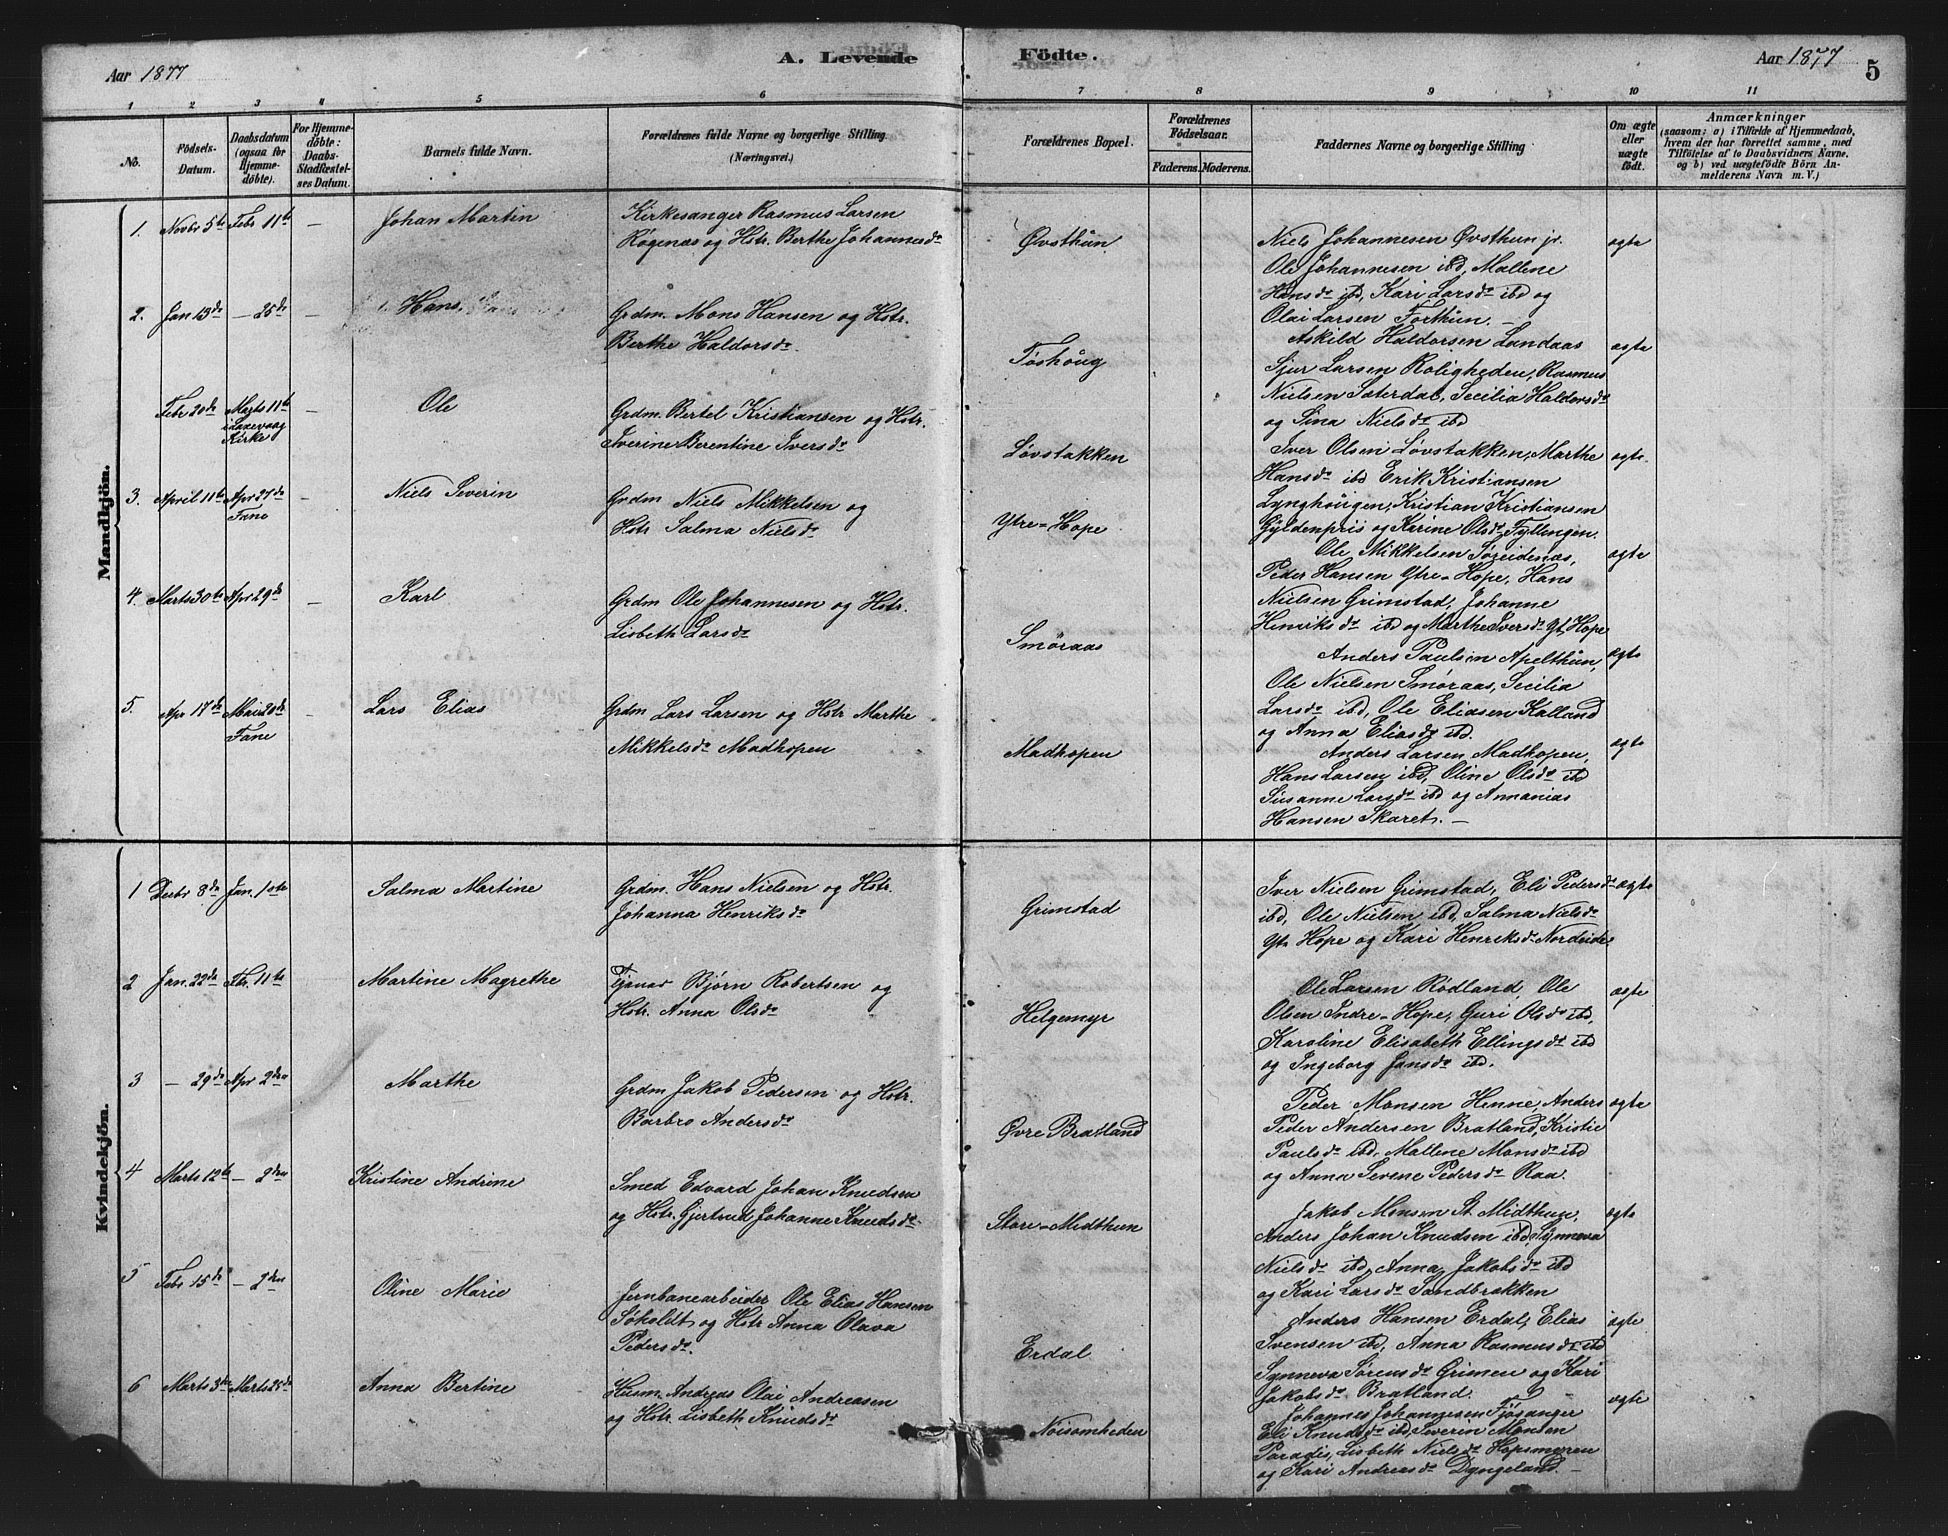 Aar 1877
A. Levende
Födte.
Aar 1877
5
1 2 3 4 5 6 7 8 9 10 11
No.
Födsels-
Datum.
Daabsdatum
(ogsaa for
Hjemme-
döbte).
For Hjemme-
döbte:
Daabs-
Stadfæstel-
ses Datum.
Barnets fulde Navn.
Forældrenes fulde Navne og borgerlige Stilling.
(Næringsvei.)
Forældrenes Bopæl.
Forældrenes
Födselsaar.
Faderens. Moderens.
Faddernes Navne og borgerlige Stilling
Om ægte
eller
uægte
födt.
Anmærkninger
(saasom: a) i Tilfælde af Hjemmedaab,
hvem der har forrettet samme, med
Tilföielse af to Daabsvidners Navne.
og b) ved uægtefödte Börn An-
melderens Navn m. V.)
Mandkjön.
1. Novbr 5te Febr 11te — Johan Martin
Kirkesanger Rasmus Larsen
Røgenæs og Hstr. Berthe Johannesdr
Øvsthun
Niels Johannesen Øvsthun jr.
Ole Johannesen ibd, Mallene
Hansdr ibd, Kari Larsdr ibd og
Olai Larsen Forthun. —
ægte
2. Jan 13de — 25de — Hans
Grdm. Mons Hansen og Hstr.
Berthe Haldorsdr
Toshoug
Askild Haldorsen Landaas
Sjur Larsen Roligheden, Rasmus
Nielsen Sæterdal, Secilia Haldorsdr
og Sina Nielsdr ibd
ægte
Febr 20de Marts 11te
i Laxevaag
Kirke
— Ole
Grdm. Bertel Kristiansen og Hstr.
Iverine Berentine Iversdr
Løvstakken
Iver Olsen Løvstakken, Marthe
Hansdr ibd Erik Kristiansen
Lynghougen, Kristian Kristiansen
Gyldenpris og Karine Olsdr Fyllingen.
ægte.
3. April 11te Apr 27de
Fane
— Niels Severin
Grdm Niels Mikkelsen og
Hstr Salma Nielsdr
Ytre-Hope
Ole Mikkelsen Søreidenæs,
Peder Hansen Ytre-Hope, Hans
Nielsen Grimstad, Johanne
Henriksdr ibd og Marthe Iversdr Yt. Hope
ægte
4. Marts 30te Apr 29de — Karl
Grdm Ole Johannesen og Hstr.
Lisbeth Larsdr
Smøraas
Anders Paulsen Apelthun,
Ole Nielsen Smøraas, Secilia
Larsdr ibd, Ole Eliasen Kalland
og Anna Eliasdr ibd.
ægte
5. Apr 17de Mai 20de
Fane
— Lars Elias
Grdm Lars Larsen og Hstr Marthe
Mikkelsdr Madhopen
Madhopen
Anders Larsen Madhopen,
Hans Larsen ibd, Oline Olsdr ibd
Susanne Larsdr ibd og Annanias
Hansen Skaret. —
ægte
Kvindekjön.
1 Decbr 8de Jan. 1ste Salma Martine
Grdm. Hans Nielsen og Hstr.
Johanna Henriksdr
Grimstad
Iver Nielsen Grimstad, Eli Pedersdr
ibd, Ole Nielsen ibd, Salma Nielsdr
Ytr Hope og Kari Henriksdr Nordeide
ægte
2 Jan. 22de Fbr. 11te Martine Magrethe
Tjener Bjørn Robertsen og
Hstr. Anna Olsdr
Helgemyr
Ole Larsen Rødland, Ole
Olsen Indre-Hope, Guri Olsdr ibd,
Karoline Elisabeth Ellingsdr ibd
og Ingeborg Jansdr ibd.
ægte
3 — 29de Apr 2den Marthe
Grdm Jakob Pedersen og Hstr.
Barbro Andersdr
Øvre Bratland
Peder Monsen Henne, Anders
Peder Andersen Bratland, Kristie
Paulsdr ibd, Mallene Monsdr ibd
og Anna Severe Pedersdr Raa.
ægte
4 Marts 12te — 2den Kristine Andrine
Smed Edvard Johan Knudsen
og Hstr. Gjertrud Johanne Knudsdr
Store-Midthun
Jakob Monsen St. Midthun,
Anders Johan Knudsen ibd, Synneva
Nielsdr ibd, Anna Jakobsdr ibd
og Kari Larsdr Sandbrækken
ægte
5 Febr 15de — 2den Oline Marie
Jernbanearbeider Ole Elias Hansen
Søholdt og Hstr Anna Olava
Pedersdr.
Erdal
Anders Hansen Erdal, Elias
Svensen ibd, Anna Rasmusdr ibd
Synneva Sørensdr Grimen og Kari
Jakobsdr Bratland.
ægte
6 Marts 3die Marts 25de Anna Bertine
Husm. Andreas Olai Andreasen
og Hstr. Lisbeth Knudsdr
Noisomheden
Johannes Johannesen Fjøsanger
Eli Knudsdr ibd, Severin Monsen
Paradis, Lisbeth Nielsdr Hopsmyren
og Kari Andreasdr Dyngeland. —
ægte